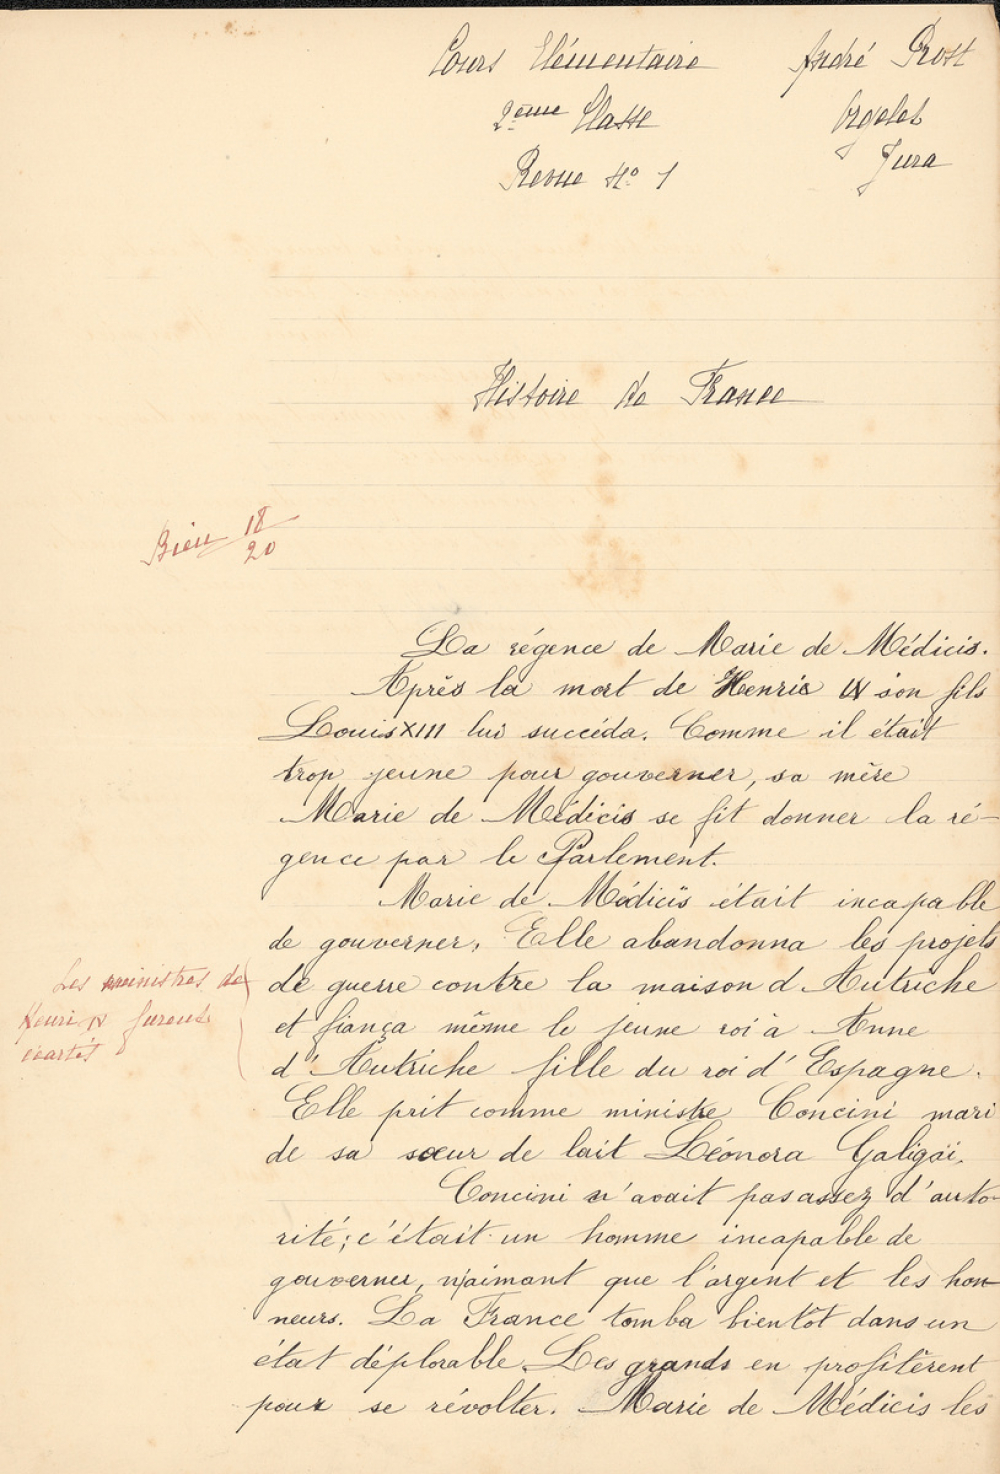 Cours Elémentaire
André Prost
2ème Classe
Orgelet
Revue No 1
Jura
Histoire de France
Bien 18/20
La régence de Marie de Médicis.
Après la mort de Henri IV son fils
Louis XIII lui succéda. Comme il était
trop jeune pour gouverner, sa mère
Marie de Médicis se fit donner la ré-
gence par le Parlement.
Marie de Médicis était incapable
de gouverner. Elle abandonna les projets
de guerre contre la maison d'Autriche
et fiança même le jeune roi à Anne
d'Autriche fille du roi d'Espagne.
Elle prit comme ministre Concini mari
de sa sœur de lait Léonora Galigaï.
Les ministres de
Henri IV furent
écartés
Concini n'avait pas assez d'auto-
rité; c'était un homme incapable de
gouverner, n'aimant que l'argent et les hon-
neurs. La France tomba bientôt dans un
état déplorable. Les grands en profitèrent
pour se révolter. Marie de Médicis les